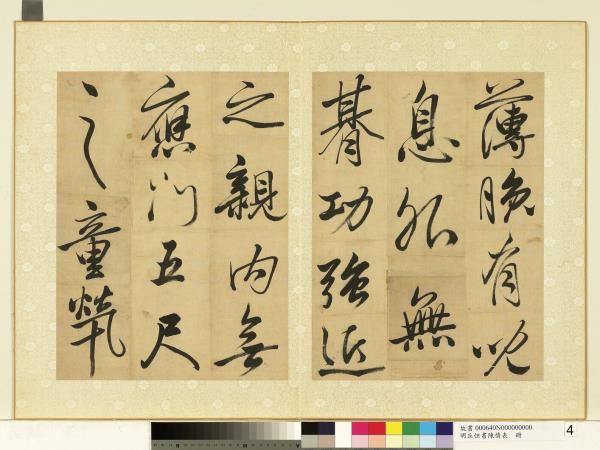 薄晚有兒
息外無
朞功強近
之親內無
應門五尺
之童煢
故書 000640N000000000
書陳情表 冊
4